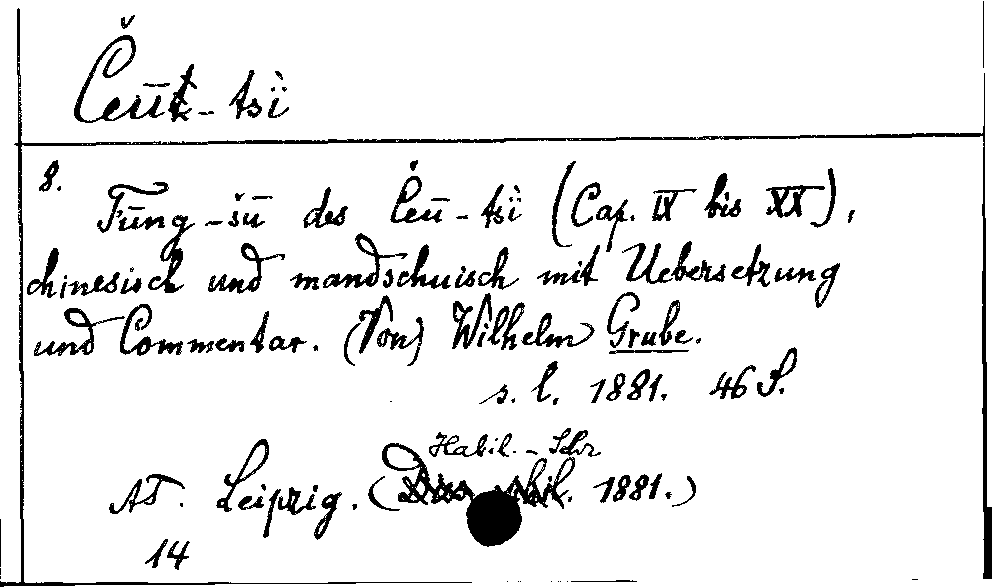 Čeū-tsï
8.
Tūng-šū des Čeū-tsï (Cap. IX bis XX),
chinesisch und mandschuisch mit Uebersetzung
und Commentar. (Von) Wilhelm Grube.
s. l. 1881. 46 S.
Habil.-Schr
AT. Leipzig. (Diss. phil. 1881.)
14